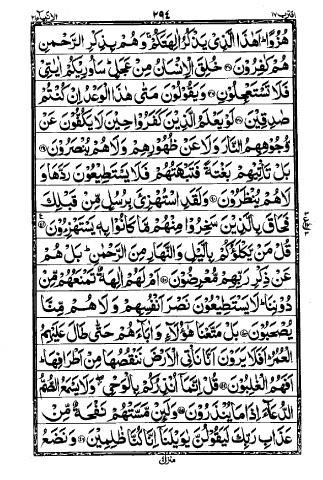 اقترب ١٧ ٢٩٤ الانبیآء ٢١
هُزُوًا ؕ اَهٰذَا الَّذِیْ یَذْكُرُ اٰلِهَتَكُمْ ۚ وَ هُمْ بِذِكْرِ الرَّحْمٰنِ
هُمْ كٰفِرُوْنَ ۝ خُلِقَ الْاِنْسَانُ مِنْ عَجَلٍ ؕ سَاُورِیْكُمْ اٰیٰتِیْ
فَلَا تَسْتَعْجِلُوْنِ ۝ وَ یَقُوْلُوْنَ مَتٰی هٰذَا الْوَعْدُ اِنْ كُنْتُمْ
صٰدِقِیْنَ ۝ لَوْ یَعْلَمُ الَّذِیْنَ كَفَرُوْا حِیْنَ لَا یَكُفُّوْنَ عَنْ
وُّجُوْهِهِمُ النَّارَ وَ لَا عَنْ ظُهُوْرِهِمْ وَ لَا هُمْ یُنْصَرُوْنَ ۝
بَلْ تَاْتِیْهِمْ بَغْتَةً فَتَبْهَتُهُمْ فَلَا یَسْتَطِیْعُوْنَ رَدَّهَا وَ
لَا هُمْ یُنْظَرُوْنَ ۝ وَ لَقَدِ اسْتُهْزِئَ بِرُسُلٍ مِّنْ قَبْلِكَ
فَحَاقَ بِالَّذِیْنَ سَخِرُوْا مِنْهُمْ مَّا كَانُوْا بِهٖ یَسْتَهْزِءُوْنَ ۝
قُلْ مَنْ یَّكْلَؤُكُمْ بِالَّیْلِ وَ النَّهَارِ مِنَ الرَّحْمٰنِ ؕ بَلْ هُمْ
عَنْ ذِكْرِ رَبِّهِمْ مُّعْرِضُوْنَ ۝ اَمْ لَهُمْ اٰلِهَةٌ تَمْنَعُهُمْ مِّنْ
دُوْنِنَا ؕ لَا یَسْتَطِیْعُوْنَ نَصْرَ اَنْفُسِهِمْ وَ لَا هُمْ مِّنَّا
یُصْحَبُوْنَ ۝ بَلْ مَتَّعْنَا هٰۤؤُلَآءِ وَ اٰبَآءَهُمْ حَتّٰی طَالَ عَلَیْهِمُ
الْعُمُرُ ؕ اَفَلَا یَرَوْنَ اَنَّا نَاْتِی الْاَرْضَ نَنْقُصُهَا مِنْ اَطْرَافِهَا ؕ
اَفَهُمُ الْغٰلِبُوْنَ ۝ قُلْ اِنَّمَاۤ اُنْذِرُكُمْ بِالْوَحْیِ ۖ وَ لَا یَسْمَعُ الصُّمُّ
الدُّعَآءَ اِذَا مَا یُنْذَرُوْنَ ۝ وَ لَىِٕنْ مَّسَّتْهُمْ نَفْحَةٌ مِّنْ
عَذَابِ رَبِّكَ لَیَقُوْلُنَّ یٰوَیْلَنَاۤ اِنَّا كُنَّا ظٰلِمِیْنَ ۝ وَ نَضَعُ
منزل